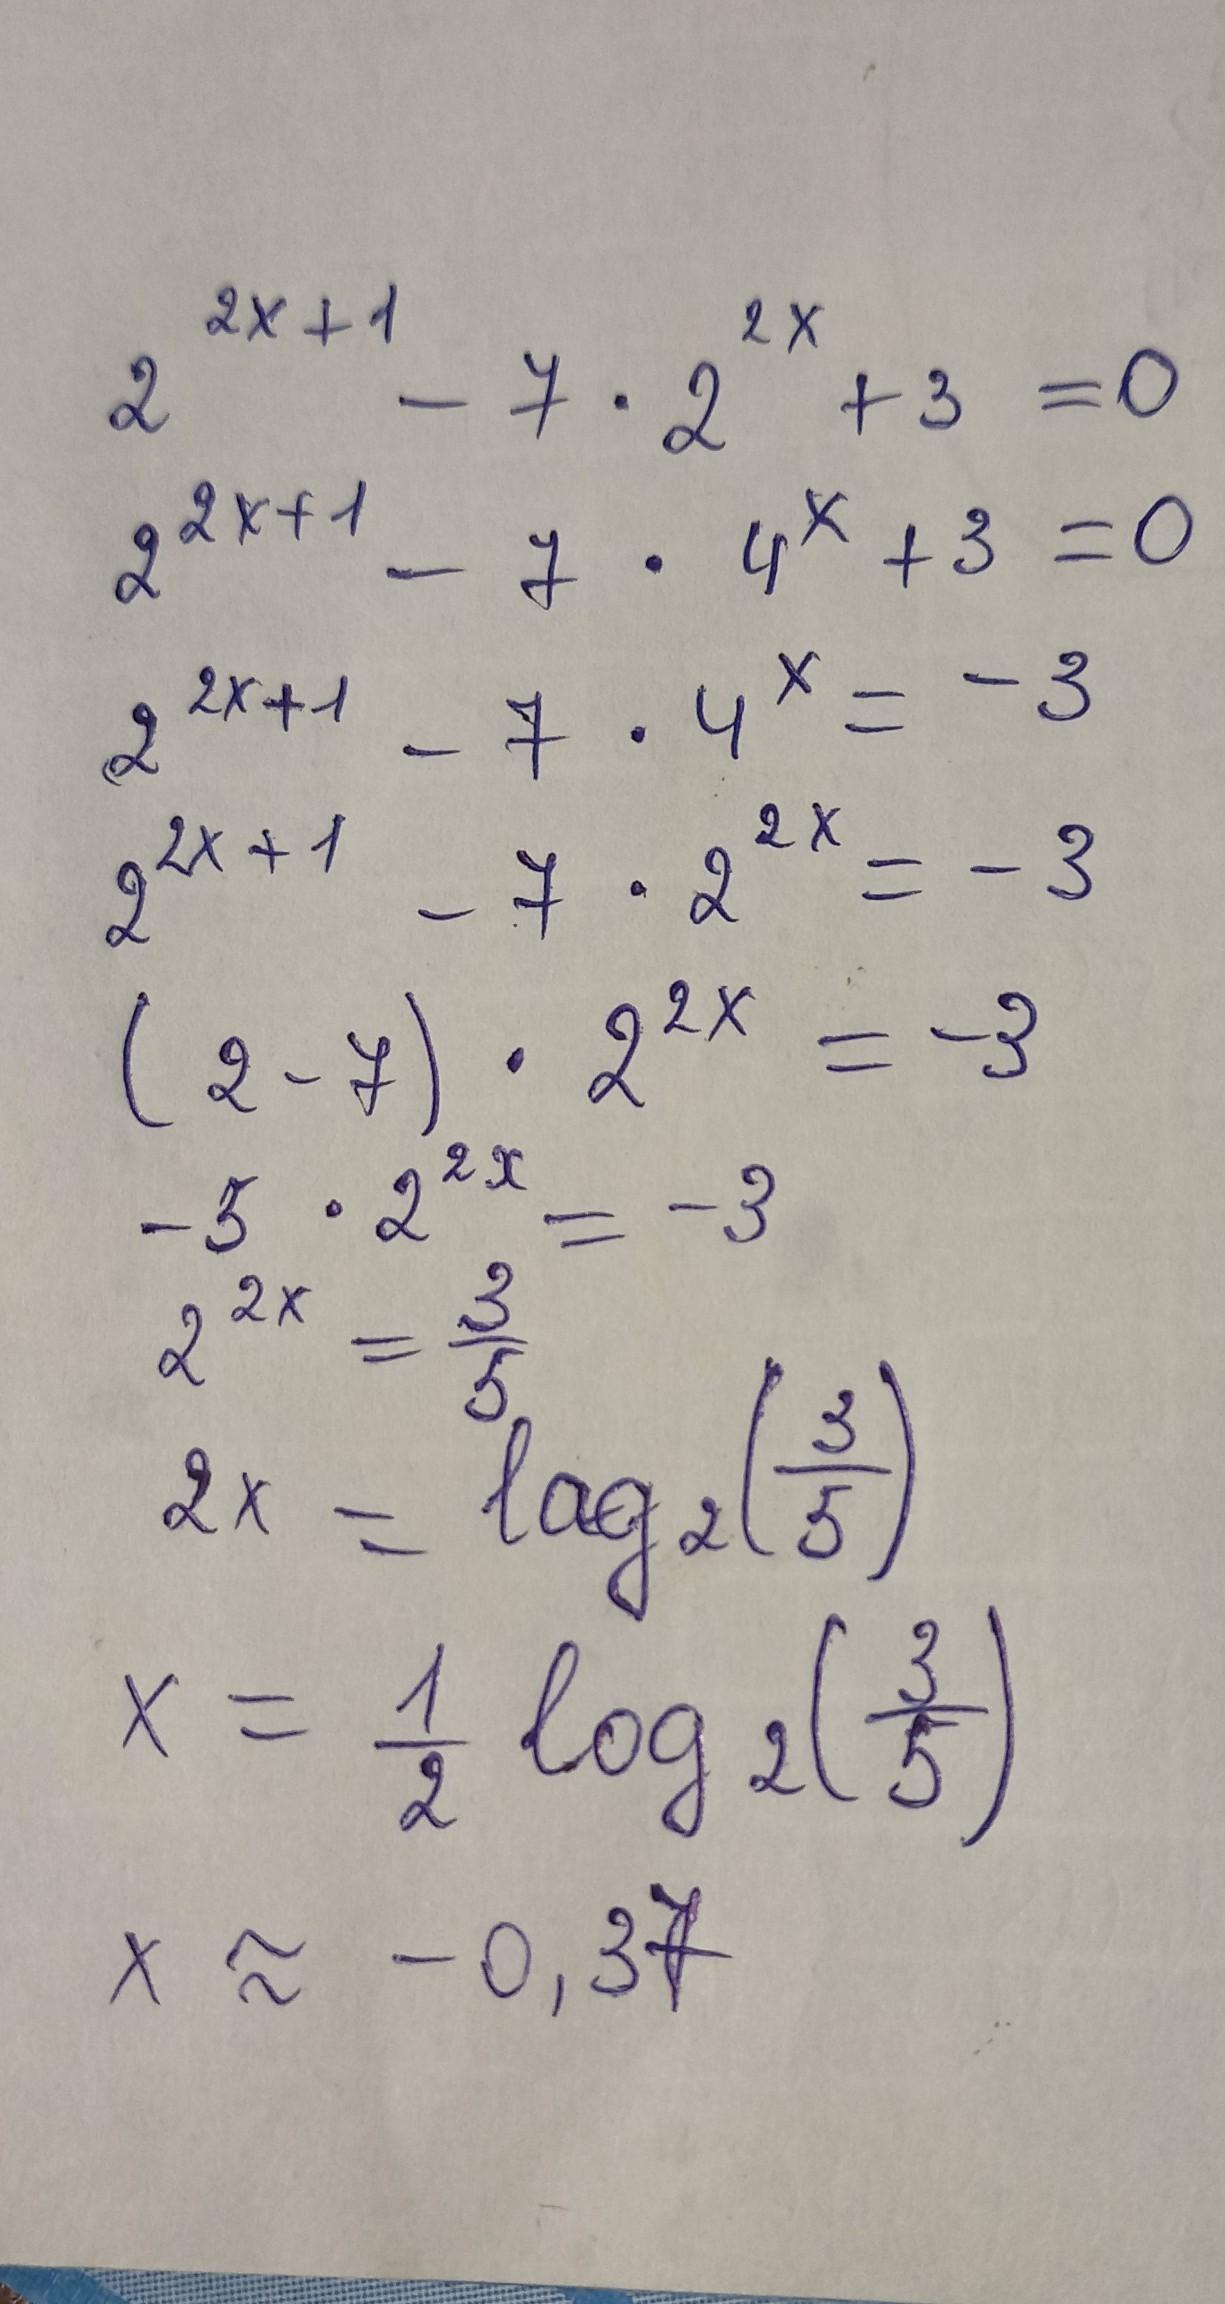 2^{2x+1} - 7 · 2^{2x} + 3 = 0
2^{2x+1} - 7 · 4^x + 3 = 0
2^{2x+1} - 7 · 4^x = -3
2^{2x+1} - 7 · 2^{2x} = -3
(2-7) · 2^{2x} = -3
-5 · 2^{2x} = -3
2^{2x} = \frac{3}{5}
2x = lag_2(\frac{3}{5})
x = \frac{1}{2} log_2(\frac{3}{5})
x ≈ -0,37